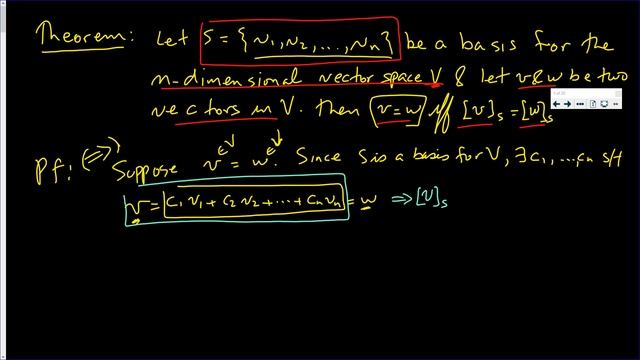 Theorem: Let S = {v1, v2, ..., vn} be a basis for the
n-dimensional vector space V & let v & w be two
vectors in V. Then v = w iff [v]s = [w]s
Pf: (=>) Suppose v∈V = w∈V. Since S is a basis for V, ∃ c1, ..., cn s/t
v = c1 v1 + c2 v2 + ... + cn vn = w => [v]s